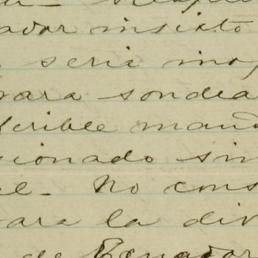 ador insisto
seria ino
para sondea
ferible man
sionado sin
el. No cons
para la div
de Ecuador